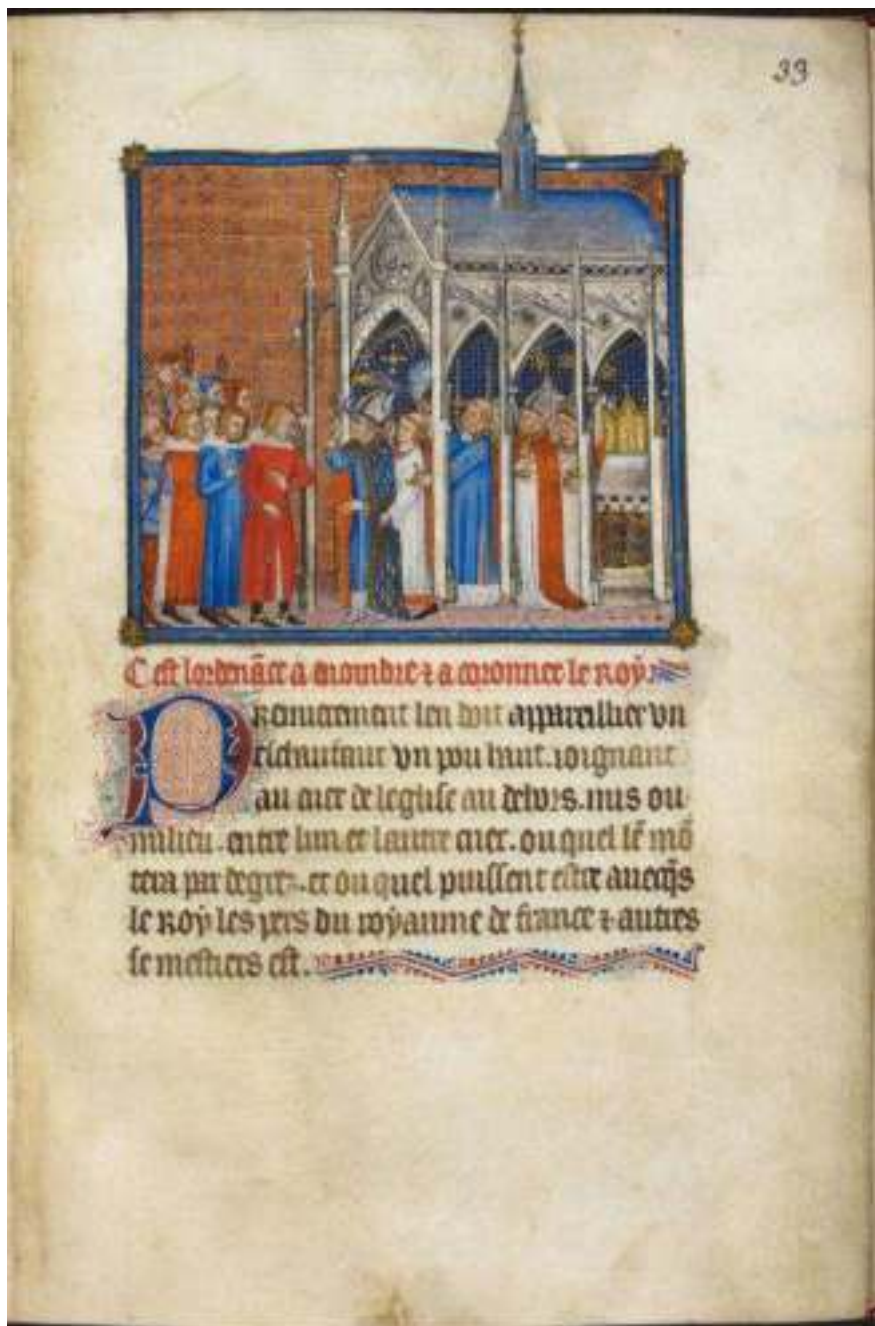 33
C est lordenāce a enoindre ⁊ a coronner le Roy.
Premierement len doit appareillier vn
eschaufaut vn pou haut. ioignant
au cuer de leglise au dehors. mis ou
milieu. entre lun et lautre cuer. ou quel lē mō
tera par degrez. et ou quel puissent estre auecq̄s
le Roy les pers du royaume de france ⁊ autres
se mestiers est.